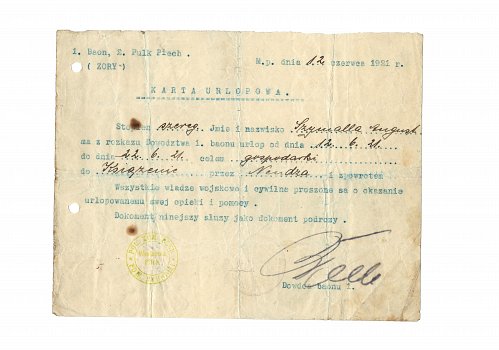 1. Baon, 2. Pulk Piech.
( ZORY )
M.p. dnia 12 czerwca 1921 r.
KARTA URLOPOWA.
Stopień szereg. Jmie i nazwisko Szymalla August
ma z rozkazu Dowodztwa 1. baonu urlop od dnia 12. 6. 21.
do dnia 22. 6. 21. celem gospodarki
do Książenic przez Nendza i zpowrotem
Wszystkie wladze wojskowe i cywilne proszone sa o okazanie
urlopowanemu swej opieki i pomocy.
Dokument ninejszy sluzy jako dokument podrozy.
Dowodca baonu 1.